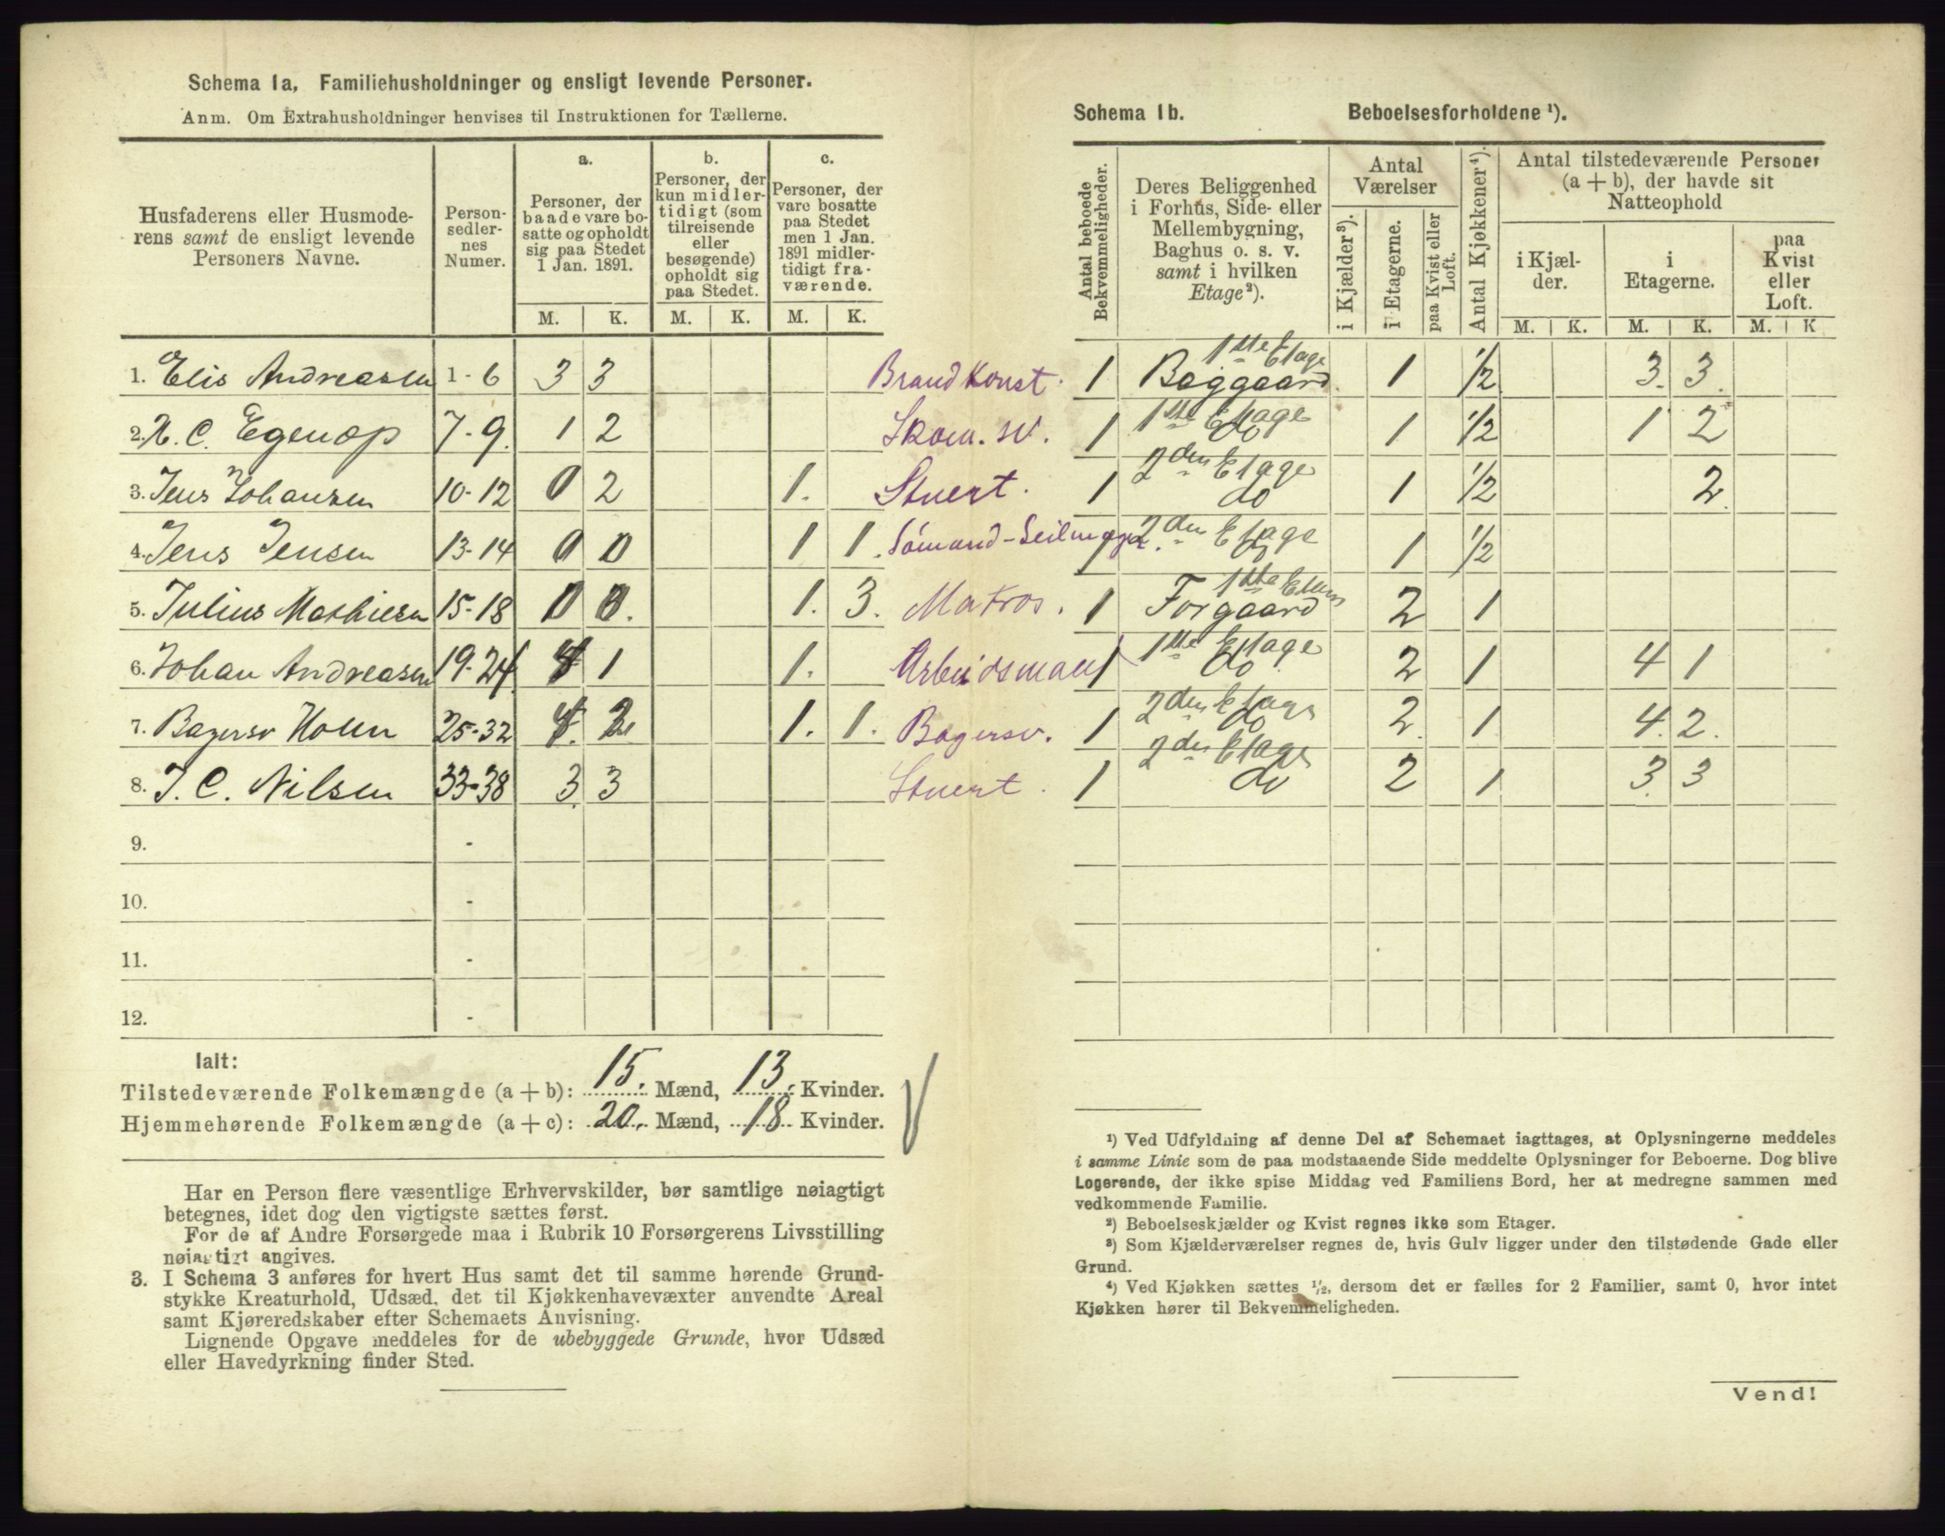 Schema 1a, Familiehusholdninger og ensligt levende Personer.
Anm. Om Extrahusholdninger henvises til Instruktionen for Tællerne.
Husfaderens eller Husmoderens samt de ensligt levende Personers Navne.
Personsedlernes Numer.
a. Personer, der baade vare bosatte og opholdt sig paa Stedet 1 Jan. 1891.
b. Personer, der kun midlertidigt (som tilreisende eller besøgende) opholdt sig paa Stedet.
c. Personer, der vare bosatte paa Stedet men 1 Jan. 1891 midlertidigt fraværende.
M. K. M. K. M. K.
1. Elis Andreasen 1-6 3 3 Brandkonst.
2. H. C. Egenæs 7-9. 1 2 Skom. sv.
3. Jens Johansen 10-12 0 2 1. Stuert.
4. Jens Jensen 13-14 0 0 1 1. Sömand-Seilmager.
5. Julius Mathiesen 15-18 0 0. 1. 3. Matros.
6. Johan Andreasen 19-24 4 1 1. Arbeidsmand
7. Bagersv Holm 25-32 4. 2 1. 1. Bagersv.
8. J. C. Nilsen 33-38 3. 3 Stuert.
9. -
10. -
11. -
12. -
Ialt:
Tilstedeværende Folkemængde (a + b): 15. Mænd, 13. Kvinder.
Hjemmehørende Folkemængde (a + c): 20. Mænd, 18 Kvinder.
Har en Person flere væsentlige Erhvervskilder, bør samtlige nøiagtigt
betegnes, idet dog den vigtigste sættes først.
For de af Andre Forsørgede maa i Rubrik 10 Forsørgerens Livsstilling
nøiagtigt angives.
3. I Schema 3 anføres for hvert Hus samt det til samme hørende Grund-
stykke Kreaturhold, Udsæd, det til Kjøkkenhavevæxter anvendte Areal
samt Kjøreredskaber efter Schemaets Anvisning.
Lignende Opgave meddeles for de ubebyggede Grunde, hvor Udsæd
eller Havedyrkning finder Sted.
Schema 1b. Beboelsesforholdene ¹).
Antal beboede Bekvemmeligheder.
Deres Beliggenhed i Forhus, Side- eller Mellembygning, Baghus o. s. v. samt i hvilken Etage²).
Antal Værelser
i Kjælder³).
i Etagerne.
paa Kvist eller Loft.
Antal Kjøkkener⁴).
Antal tilstedeværende Personer (a + b), der havde sit Natteophold
i Kjælder.
i Etagerne.
paa Kvist eller Loft.
M. K. M. K. M. K
1 1ste Etage Baggaard. 1 1/2 3. 3.
1 1ste Etage do 1 1/2 1 2
1 2den Etage do 1 1/2 2
1 2den Etage do 1 1/2
1 1ste Forgaard 2 1
1 1ste Etage do 2 1 4 1
1 2den Etage do 2. 1 4. 2.
1 2den Etage do 2 1 3. 3
¹) Ved Udfyldning af denne Del af Schemaet iagttages, at Oplysningerne meddeles
i samme Linie som de paa modstaaende Side meddelte Oplysninger for Beboerne. Dog blive
Logerende, der ikke spise Middag ved Familiens Bord, her at medregne sammen med
vedkommende Familie.
²) Beboelseskjælder og Kvist regnes ikke som Etager.
³) Som Kjælderværelser regnes de, hvis Gulv ligger under den tilstødende Gade eller
Grund.
⁴) Ved Kjøkken sættes ½, dersom det er fælles for 2 Familier, samt 0, hvor intet
Kjøkken hører til Bekvemmeligheden.
Vend!